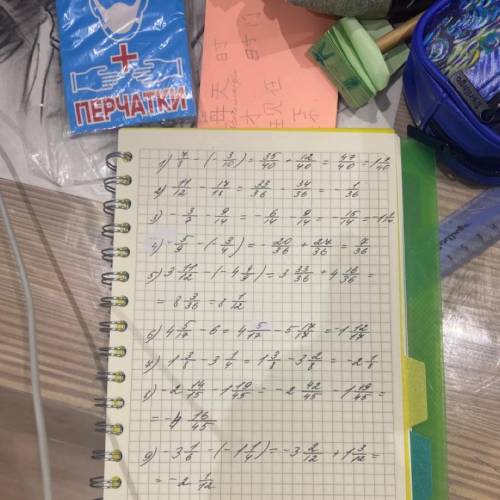 ПЕРЧАТКИ
每天 时 门
才
现在
1) 7/8 - (-3/10) = 35/40 + 12/40 = 47/40 = 1 7/40
2) 11/12 - 17/18 = 33/36 - 34/36 = -1/36
3) -3/7 - 9/14 = -6/14 - 9/14 = -15/14 = -1 1/14
4) -5/9 - (-3/4) = -20/36 + 27/36 = 7/36
5) 3 11/12 - (-4 1/9) = 3 33/36 + 4 16/36 =
= 8 3/36 = 8 1/12
6) 4 5/17 - 6 = 4 5/17 - 5 17/17 = -1 12/17
7) 1 3/8 - 3 1/4 = 1 3/8 - 3 2/8 = -2 1/8
8) -2 14/15 - 1 19/45 = -2 42/45 - 1 19/45 =
= -4 16/45
9) -3 1/6 - (-1 1/4) = -3 2/12 + 1 3/12 =
= -2 1/12